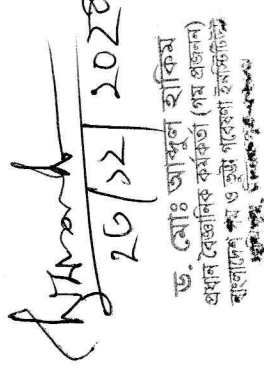 ২৫/১২/২০২৪
ড. মোঃ আব্দুল হাকিম
প্রধান বৈজ্ঞানিক কর্মকর্তা (গম প্রজনন)
বাংলাদেশ গম ও ভুট্টা গবেষণা ইনস্টিটিউট